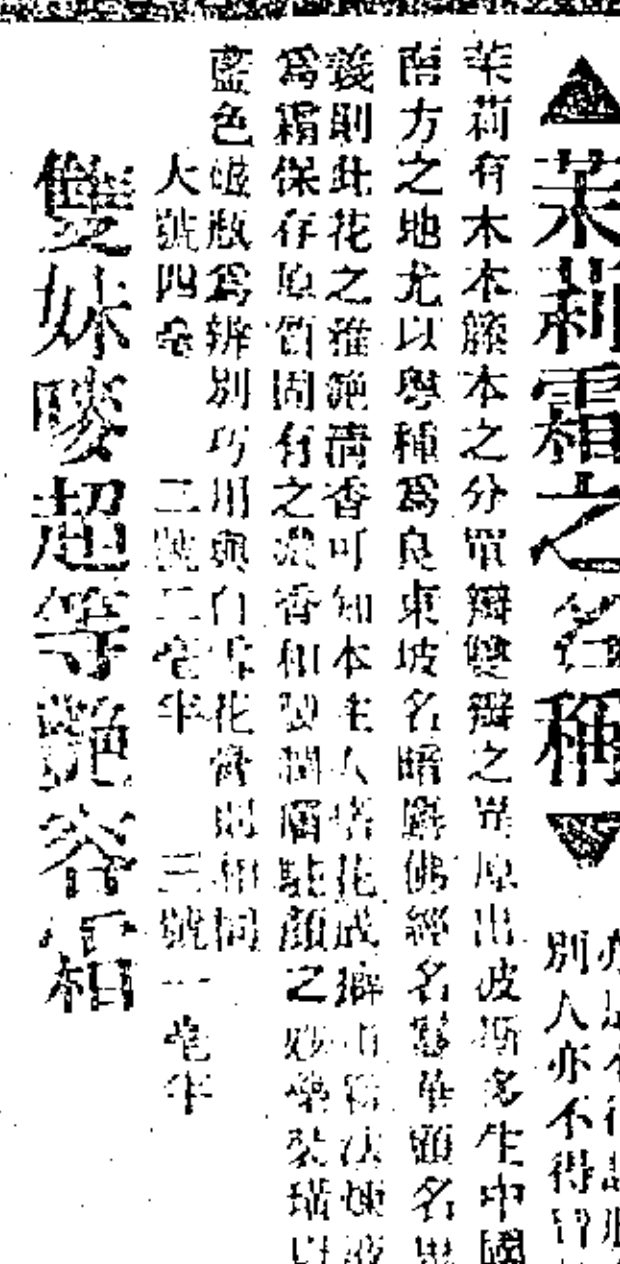 ▲茉莉霜之名稱▼
別人亦不得冒
茉莉有木本籐本之分單瓣雙瓣之異原出波斯多生中國
南方之地尤以粵種為良東坡名暗麝佛經名鬘華顧名思
義則此花之雅艶清香可知本主人惜花成癖
為霜保存原質固有之濃香和製潤膚駐顏之妙藥裝璜以
藍色磁瓶為辨別巧用與白花膏相同
大號四毫 二號二毫半 三號一毫半
雙妹嘜超等艷容霜